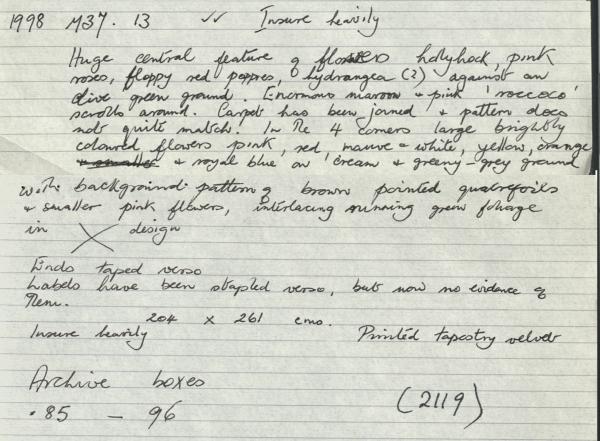 1998 M37. 13 ✓✓ Insure heavily
Huge central feature of flowers hollyhock, pink
roses, floppy red poppies, hydrangea (?) against an
olive green ground. Enormous maroon + pink 'roccoco'
scrolls around. Carpet has been joined + pattern does
not quite match. In the 4 corners large brightly
coloured flowers pink, red, mauve + white, yellow, orange
+ smaller + royal blue on cream & greeny-grey ground
with background pattern of brown pointed quatrefoils
+ smaller pink flowers, interlacing running green foliage
in X design
Ends taped verso
Labels have been stapled verso, but now no evidence of
them.
204 x 261 cms.
Insure heavily Printed tapestry velvet
Archive boxes
.85 - 96 (2119)